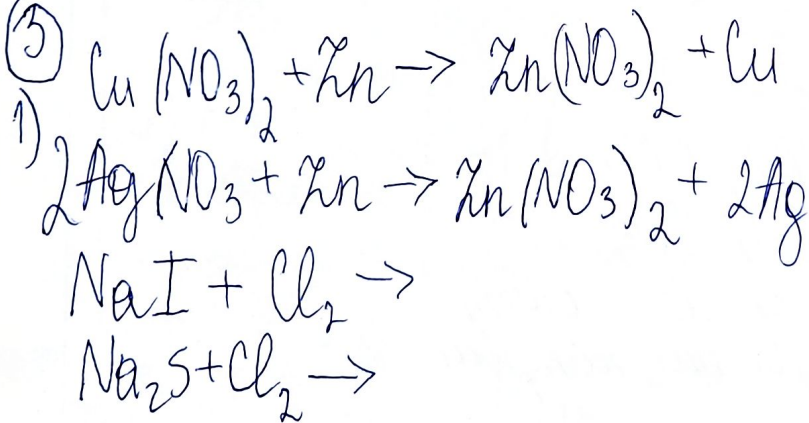 3
Cu(NO₃)₂ + Zn → Zn(NO₃)₂ + Cu
1)
2AgNO₃ + Zn → Zn(NO₃)₂ + 2Ag
NaI + Cl₂ →
Na₂S + Cl₂ →